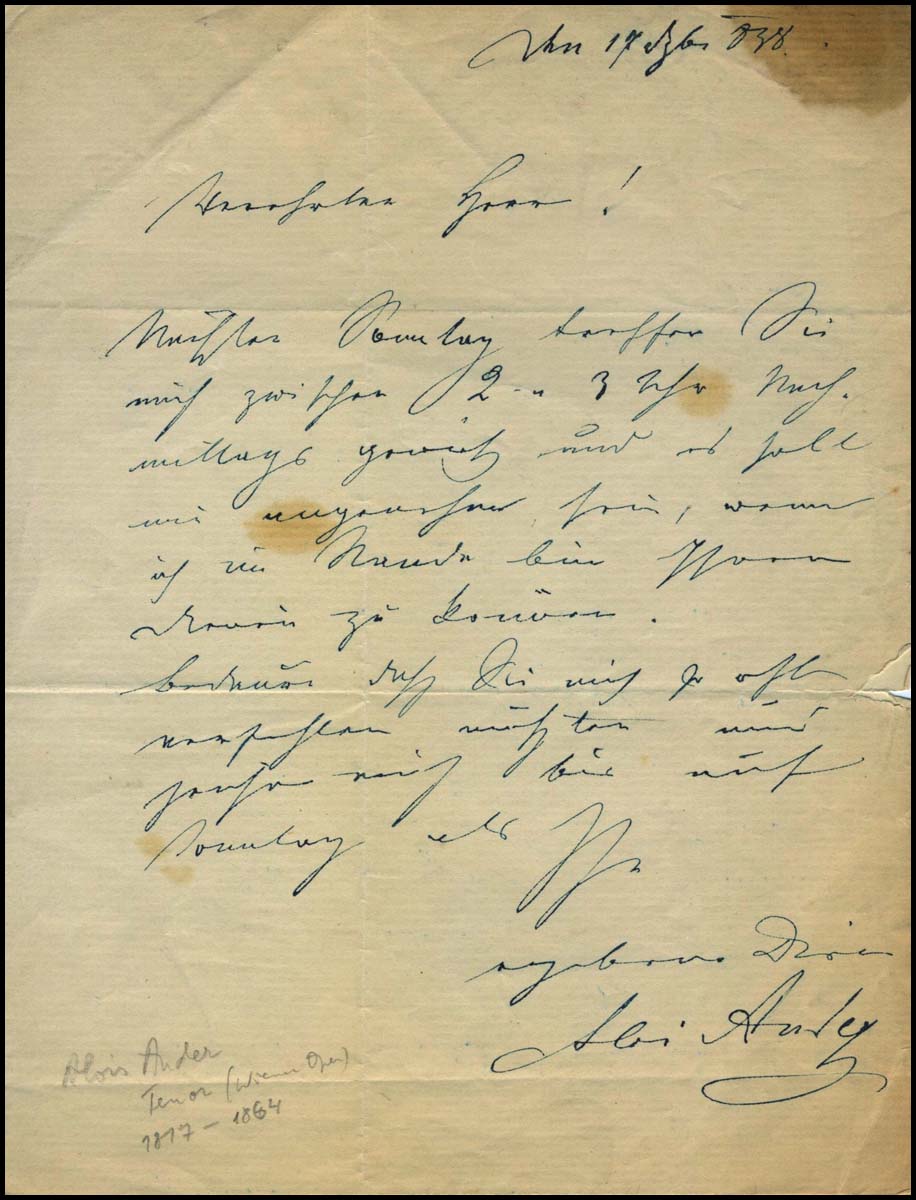 17
Verehrter Herr!
Nächsten Sonntag treffen Sie
mich zwischen 2 u 3 Uhr Nach-
mittags gewiß und es soll
mir angenehm sein, wenn
ich im Stande bin Ihnen
dienen zu können.
bedaure daß Sie mich
verfehlen mußten und
bis auf
Sonntag als Ihr
ergebener Diener
Alois Ander
Alois Ander
Tenor (Wiener Oper)
1817 – 1864